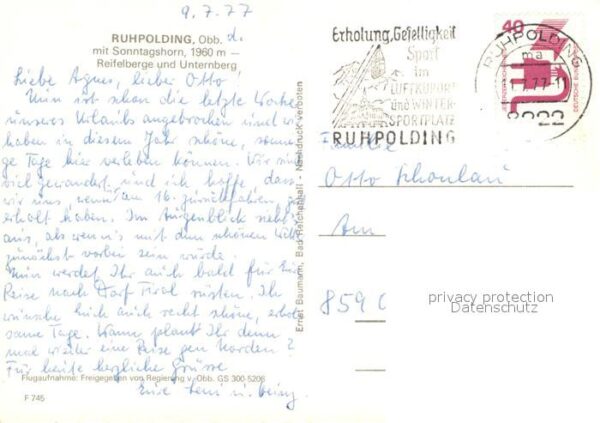 9.7.77
RUHPOLDING, Obb.
mit Sonntagshorn, 1960 m —
Reifelberge und Unternberg
Liebe Agnes, lieber Otto!
Nun ist schon die letzte Woche
unseres Urlaubs angebrochen und wir
haben in diesem Jahr schöne, sonni-
ge Tage hier verleben können. Wir sind
viel gewandert und ich hoffe, dass
wir uns, wenn wir am 16. zurückfahren,
erholt haben. Im Augenblick sieht
aus, als wenn's mit dem schönen
zunächst vorbei sein würde.
Nun werdet Ihr auch bald für Eure
Reise nach Dorf Tirol rüsten. Ich
wünsche Euch auch recht schöne, erhol-
same Tage. Wann plant Ihr denn
mal wieder eine Reise gen Norden?
Für heute herzliche Grüsse
Flugaufnahme: Freigegeben von Regierung v. Obb. GS 300-5206
Eure Leni u.
F 745
Ernst Baumann, Bad Reichenhall - Nachdruck verboten
Erholung, Geselligkeit
Sport
im
LUFTKURORT
und WINTER-
SPORTPLATZ
RUHPOLDING
RUHPOLDING
ma
.7.77-1
8222
40
DEUTSCHE BUNDESPOST
Familie
Otto
Am
859
privacy protection
Datenschutz